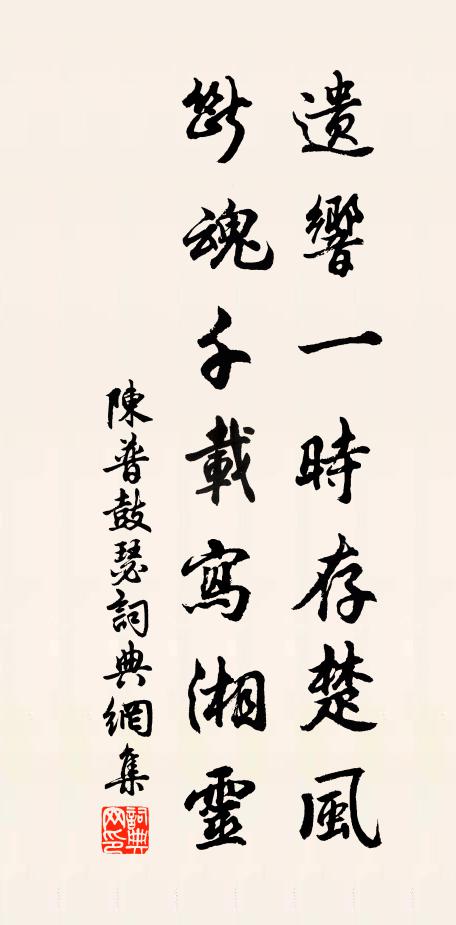 遺響一時存楚風
斷魂千載寫湘靈
陳普鼓瑟詞典網集
詞典網印